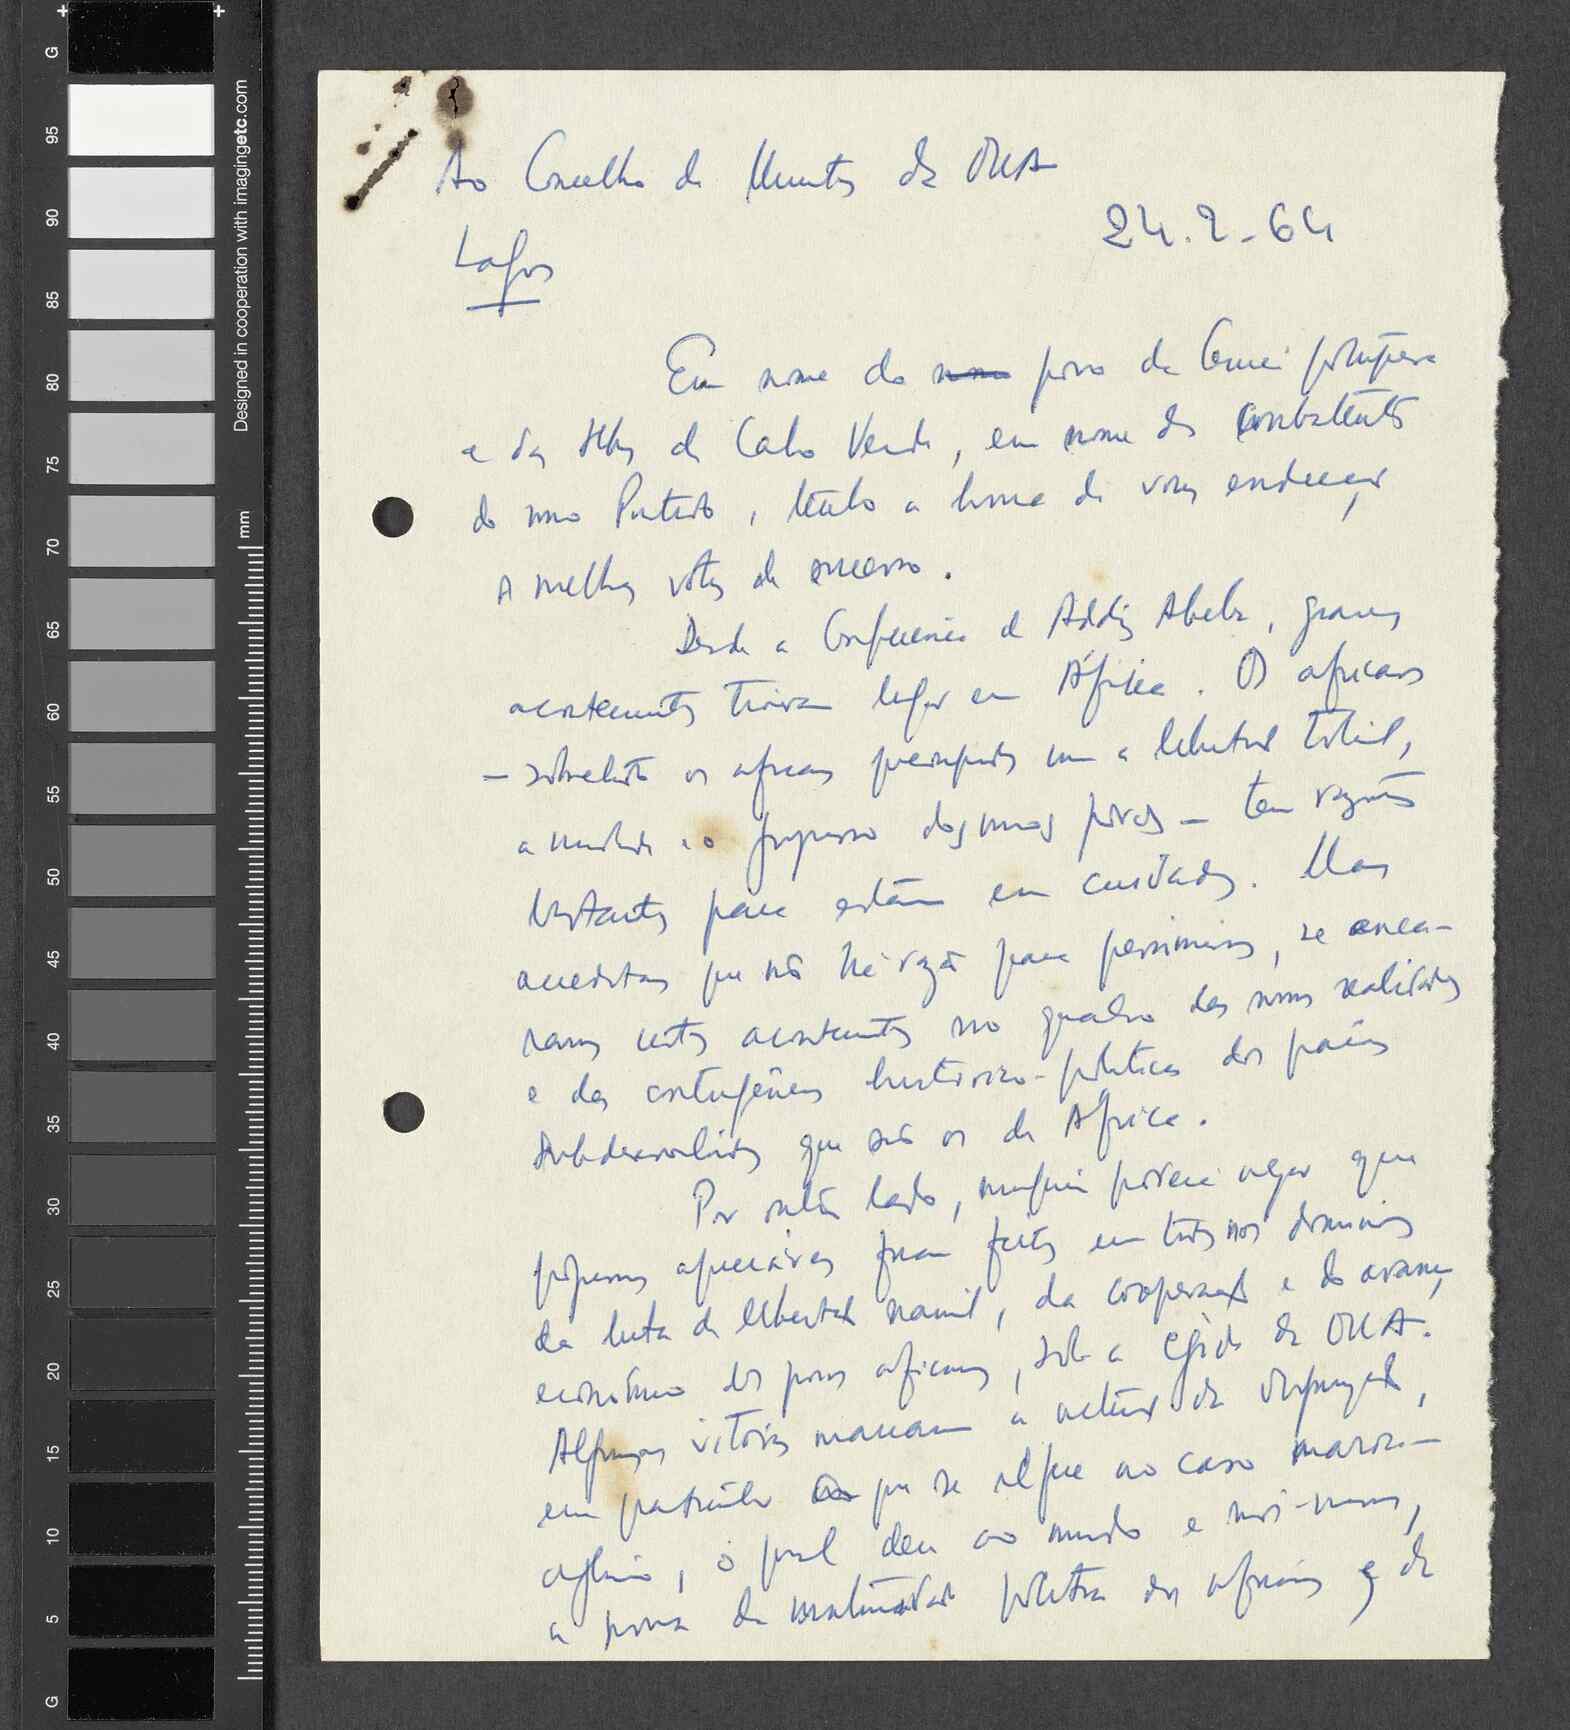 Ao Concelho de Ministros da OUA
24.2-64
Lagos
Em nome do povo da Guiné portuguesa
e das Ilhas de Cabo Verde, em nome dos combatentes
do nosso Partido, tenho a honra de vos endereçar
os melhores votos de sucesso.
Desde a Conferência de Addis Abeba, graves
acontecimentos tiveram lugar em África. Os africanos
– sobretudo os africanos preocupados com a libertação total,
a unidade e o progresso dos nossos povos – têm razões
bastantes para estarem em cuidados. Mas
acreditamos que não há razão para pessimismos, se enca-
ramos certos acontecimentos no quadro das nossas realidades
e das contingências histórico-políticas dos países
subdesenvolvidos que são os de África.
Por outro lado, ninguém poderá negar que
progressos apreciáveis foram feitos em todos os domínios
da luta de libertação nacional, da cooperação e do avanço
económico dos povos africanos, sob a égide da OUA.
Algumas vitórias marcaram a da organização,
em particular no que se refere ao caso maroco-
argelino, o qual deu ao mundo e a nós-mesmos,
a prova da maturidade política dos africanos e da